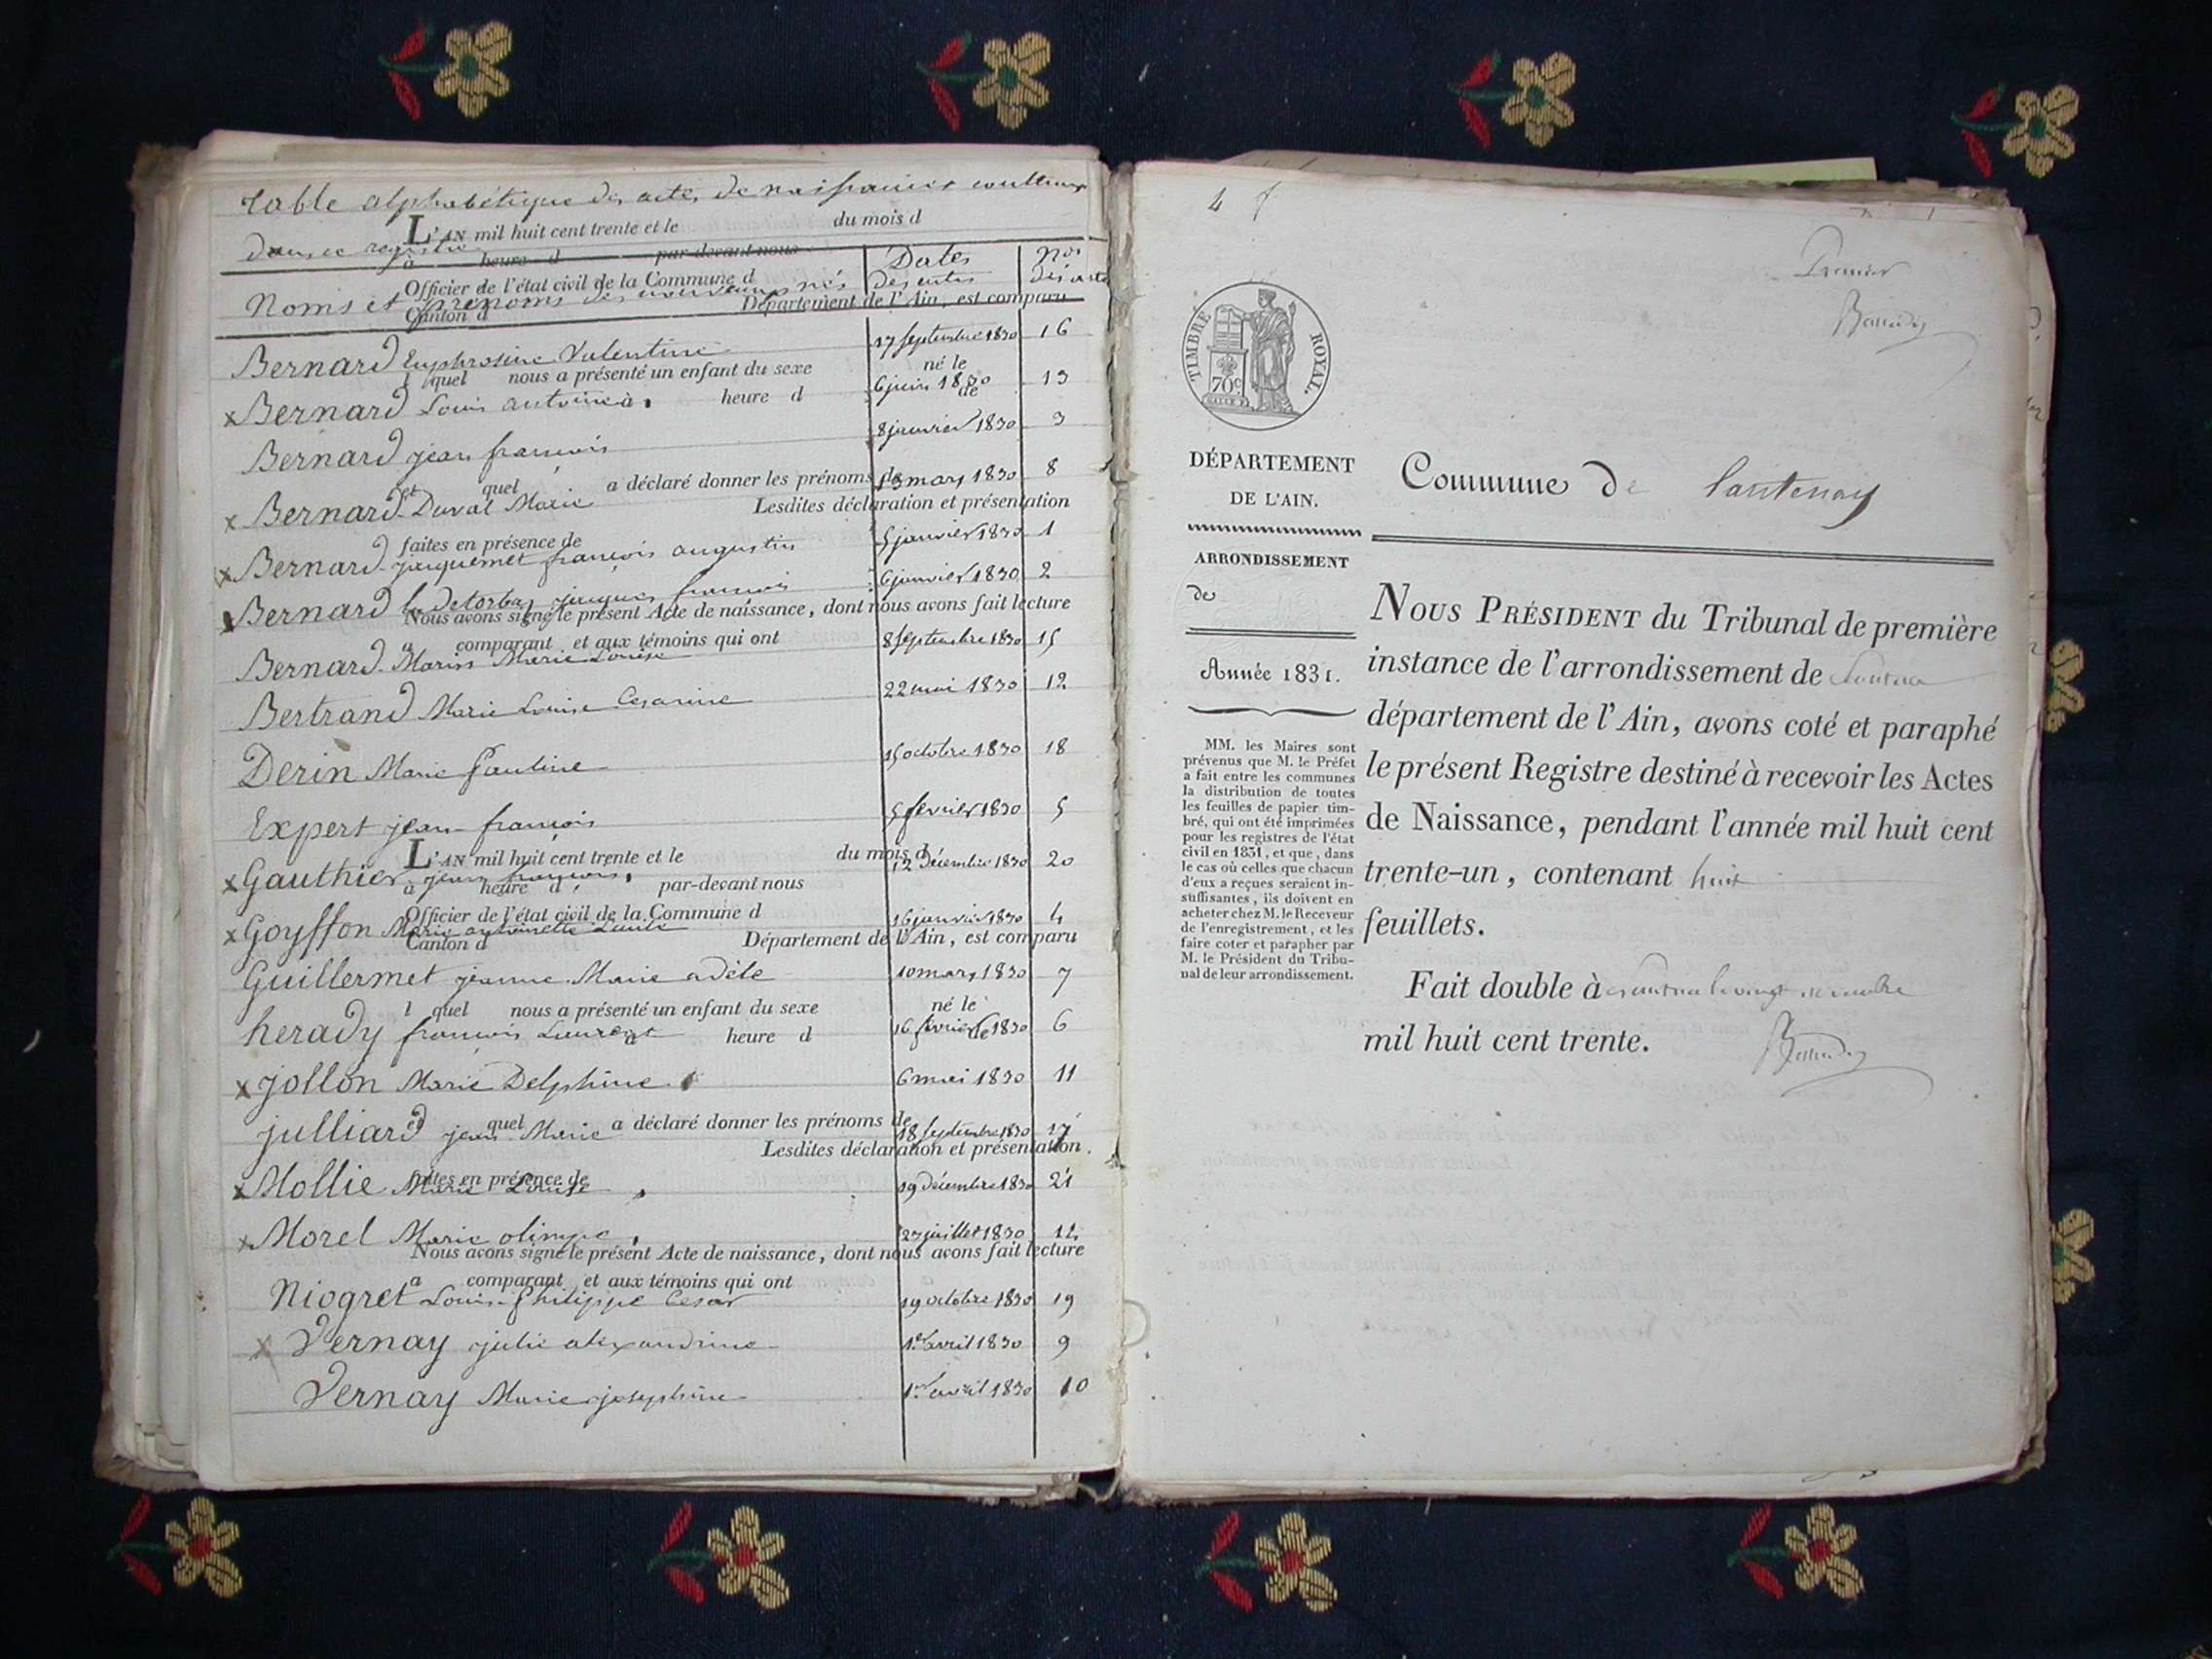 Table alphabétique des actes de naissances contenus
L'AN mil huit cent trente et le du mois d
dans ce registre
à heure d par-devant nous
Officier de l'état civil de la Commune d
Noms et prénoms des nouveaux nés
Dates des actes
Nos des actes
Canton d Département de l'Ain, est comparu
Bernard Euphrosine Valentine 17 septembre 1830 16
l quel nous a présenté un enfant du sexe né le
x Bernard Louis antoine 6 juin 1830 13
à heure d de
Bernard jean françois 8 janvier 1830 3
et quel a déclaré donner les prénoms de
x Bernard-Duval Marie mars 1830 8
Lesdites déclaration et présentation
faites en présence de
x Bernard-jacquemet françois augustin 5 janvier 1830 1
x Bernard jacques françois 6 janvier 1830 2
Nous avons signé le présent Acte de naissance, dont nous avons fait lecture
a comparant et aux témoins qui ont
Bernard-Marin Marie Louise 8 septembre 1830 15
Bertrand Marie Louise Cesarine 22 mai 1830 12
Derin Marie Pauline 15 octobre 1830 18
Expert jean-françois 5 fevrier 1830 5
L'AN mil huit cent trente et le du mois d
x Gauthier jean françois 12 Décembre 1830 20
à heure d par-devant nous
Officier de l'état civil de la Commune d
x Goyffon Marie antoinette 16 janvier 1830 4
Canton d Département de l'Ain, est comparu
Guillermet jeanne Marie adèle 10 mars 1830 7
l quel nous a présenté un enfant du sexe né le
herady françois Laurent 16 février 1830 6
à heure d de
x jollon Marie Delphine 6 mai 1830 11
et quel a déclaré donner les prénoms de
julliard jean-Marie 18 septembre 1830 17
Lesdites déclaration et présentation
faites en présence de
x Mollie Marie Louise 19 décembre 1830 21
x Morel Marie olimpe 27 juillet 1830 14
Nous avons signé le présent Acte de naissance, dont nous avons fait lecture
a comparant et aux témoins qui ont
Niogret Louis-Philippe Cesar 19 octobre 1830 19
x Vernay julie alexandrine 1er avril 1830 9
Vernay Marie josephine 1er avril 1830 10
4
Premier
TIMBRE ROYAL.
70c
DÉPARTEMENT
DE L'AIN.
ARRONDISSEMENT
de
Année 1831.
MM. les Maires sont
prévenus que M. le Préfet
a fait entre les communes
la distribution de toutes
les feuilles de papier tim-
bré, qui ont été imprimées
pour les registres de l'état
civil en 1831, et que, dans
le cas où celles que chacun
d'eux a reçues seraient in-
suffisantes, ils doivent en
acheter chez M. le Receveur
de l'enregistrement, et les
faire coter et parapher par
M. le Président du Tribu-
nal de leur arrondissement.
Commune de Lantenay
NOUS PRÉSIDENT du Tribunal de première
instance de l'arrondissement de Nantua
département de l'Ain, avons coté et paraphé
le présent Registre destiné à recevoir les Actes
de Naissance, pendant l'année mil huit cent
trente-un, contenant huit
feuillets.
Fait double à Nantua le vingt
mil huit cent trente.